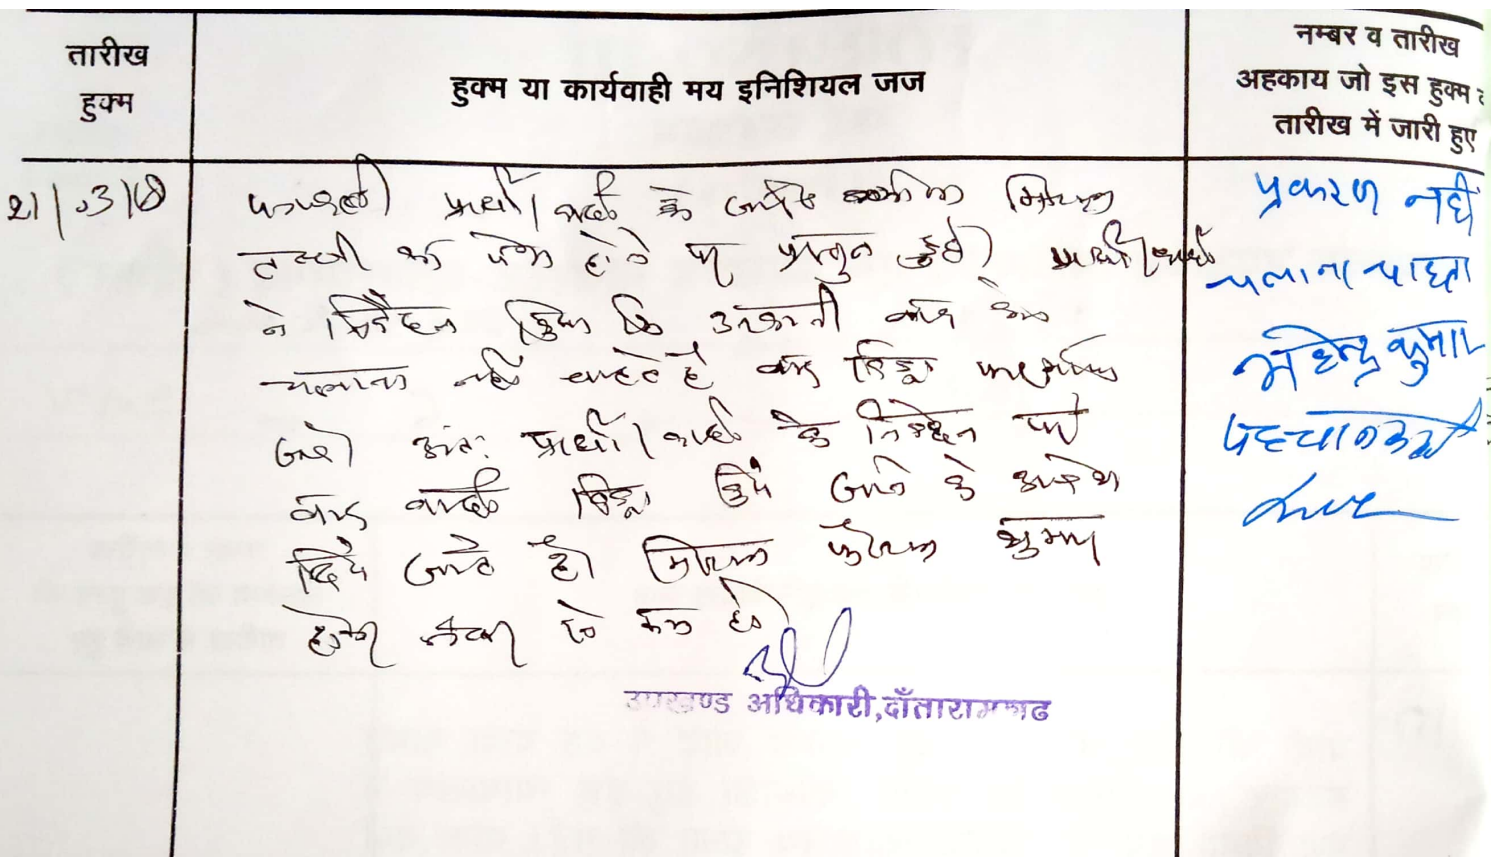 तारीख
हुक्म
हुक्म या कार्यवाही मय इनिशियल जज
नम्बर व तारीख
अहकाय जो इस हुक्म
तारीख में जारी हुए
21/.3/18
पत्रावली प्रार्थी/वादी के
तलबी का पेश होने पर प्रस्तुत हुई। प्रार्थी/वादी
ने निवेदन किया कि वाद
चलाना नहीं चाहते है वाद
अतः प्रार्थी/वादी के निवेदन पर
वाद वादी किये जाने के आदेश
दिये जाते है। मिसल फैसल शुमार
होकर नम्बर से कम हो
उपखण्ड अधिकारी,दाँतारामगढ
प्रकरण नहीं
चलाना चाहता
महेन्द्र कुमार
पहचानकर्ता